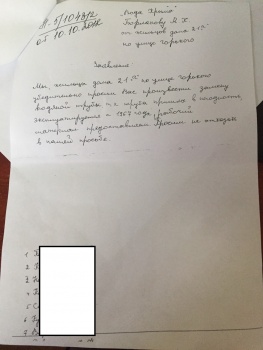 от 10.10.2012
"Мида Край"
от жильцов дома 21"а"
по улице Горького
Заявление
Мы, жильцы дома 21"а" по улице Горького
убедительно просим Вас произвести замену
водяной трубы, т.к. труба пришла в негодность,
эксплуатируется с 1967 года рабочий
материал предоставляем. Просим не отказать
в нашей просьбе.
1
2
3
4
5
6
7